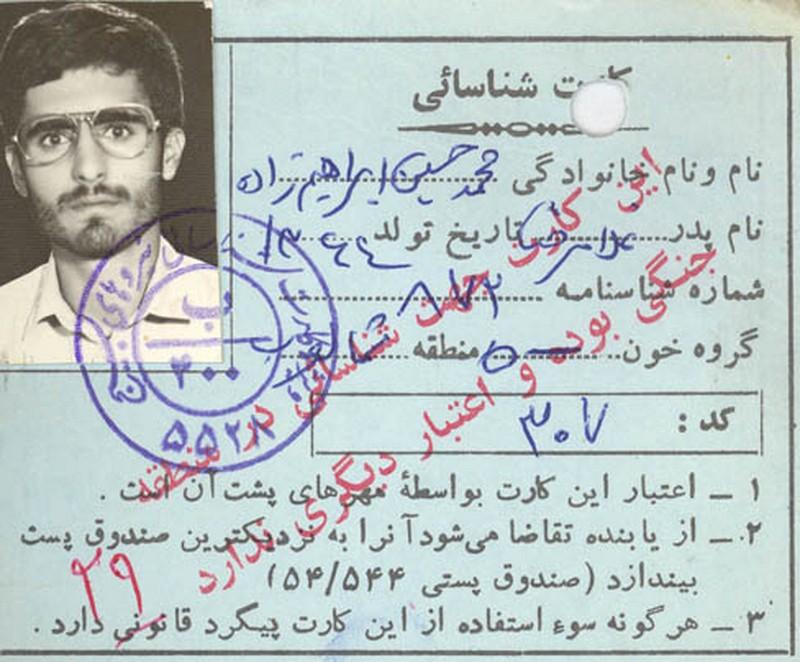 کارت شناسائی
نام و نام خانوادگی محمد حسین ابراهیم زاده
نام پدر غلامرضا تاریخ تولد ۱۳۴۴
شماره شناسنامه ۸۷۲
گروه خون O منطقه
کد : ۳۰۷
۱ ــ اعتبار این کارت بواسطهٔ مهرهای پشت آن است .
۲ ــ از یابنده تقاضا می‌شود آنرا به نزدیکترین صندوق پست
بیندازد (صندوق پستی ۵۴/۵۴۴)
۳ ــ هرگونه سوء استفاده از این کارت پیگرد قانونی دارد .
این کارت جهت شناسائی در منطقه
جنگی بوده و اعتبار دیگری ندارد
۲۹